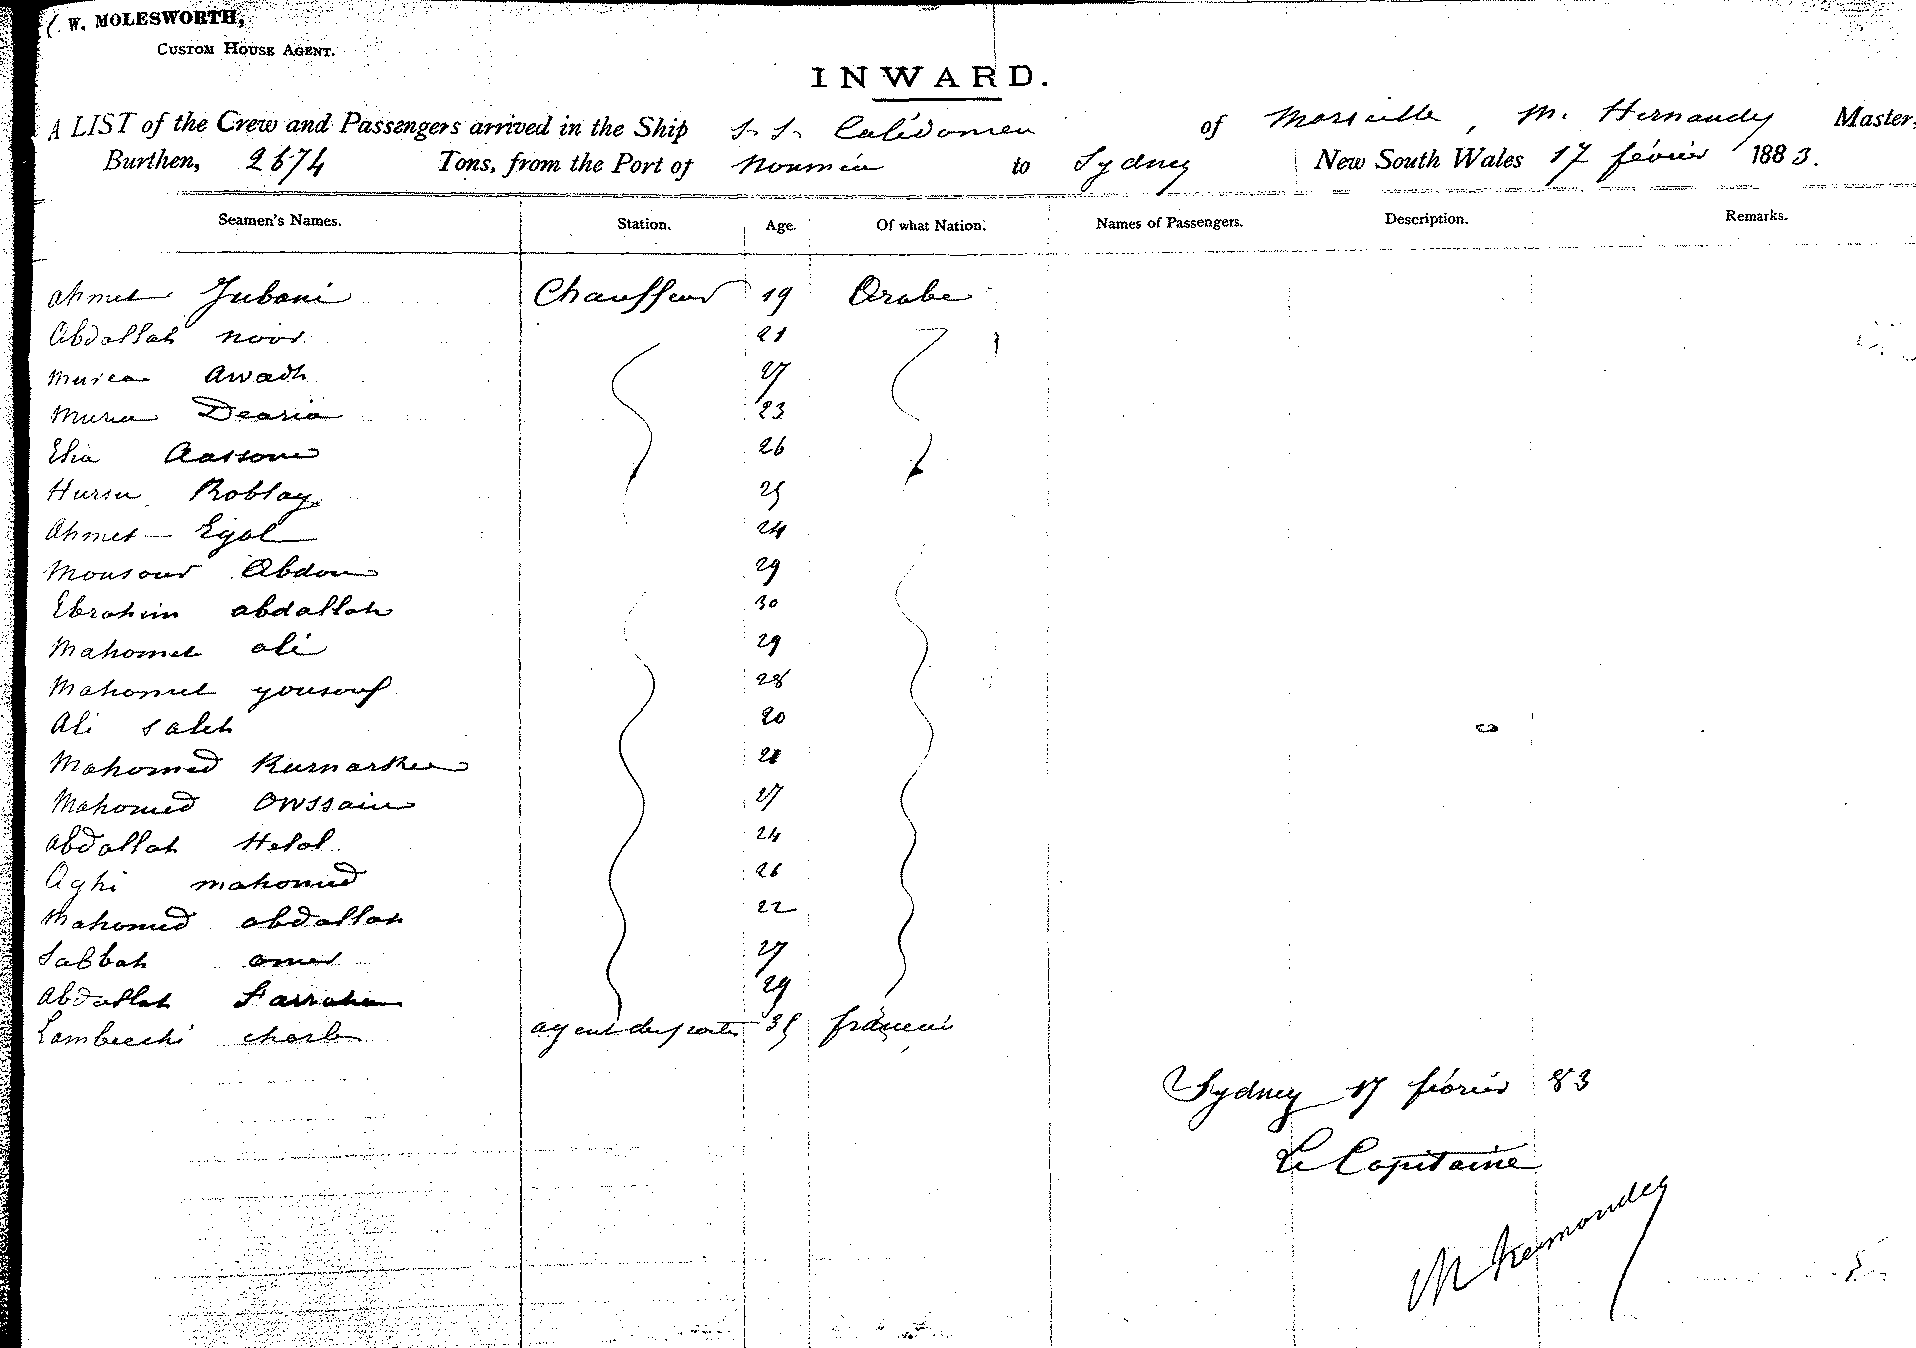 W. MOLESWORTH,
CUSTOM HOUSE AGENT.
INWARD.
A LIST of the Crew and Passengers arrived in the Ship S. S. Calédonien of Marseille, M. Hernandez Master,
Burthen, 2674 Tons, from the Port of Nouméa to Sydney New South Wales 17 février 1883.
Seamen's Names. Station. Age. Of what Nation. Names of Passengers. Description. Remarks.
Ahmet Jubani Chauffeur 19 Arabe
Abdallah Noor 21
Awadh 27
Dearia 23
Elia Aassome 26
Robley 25
Ahmet Egal 24
Monsour Abdou 29
Ebrahim abdallah 30
Mahomet ali 29
Mahomet yousouf 28
Ali Saleh 20
Mahomed 21
Mahomed Owssain 27
abdallah Helal 24
Aghi mahomed 26
Mahomed abdallah 22
Sabbah omer 27
Abdallah Farrahm 29
Lambecchi charles agent des postes 35 français
Sydney 17 février 83
Le Capitaine
M Hernandez